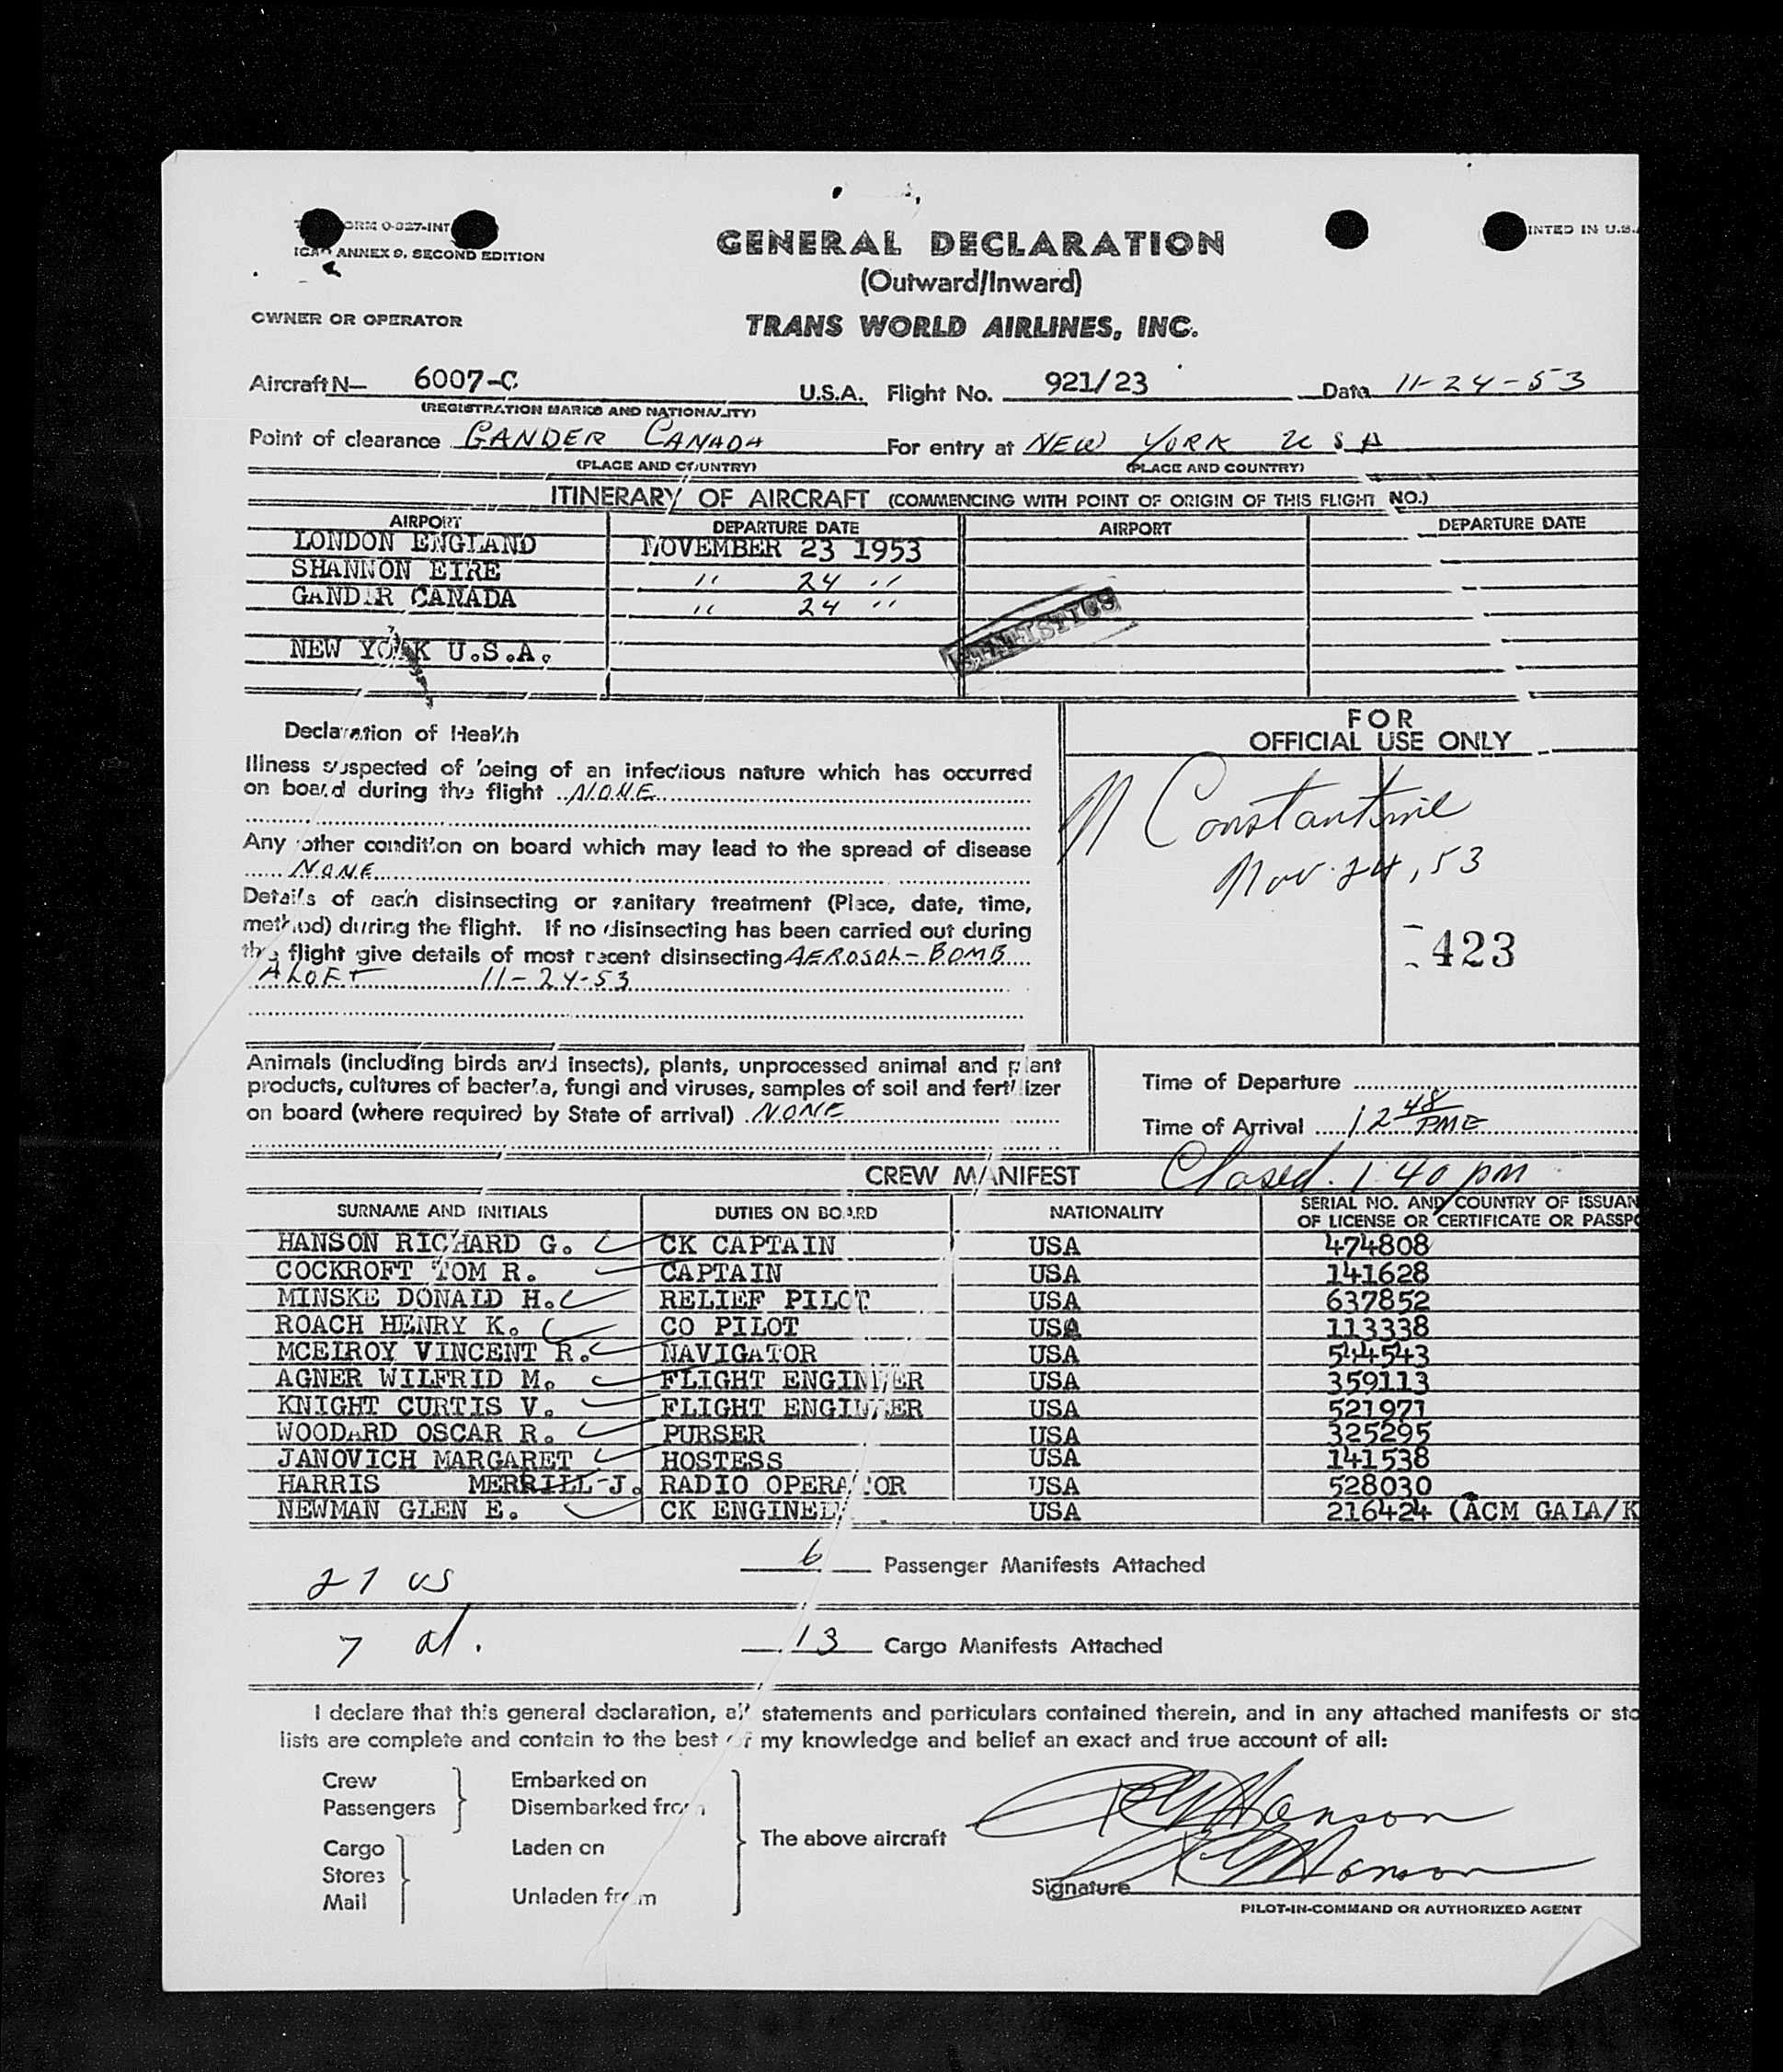 ORM 0-827-INT
INTED IN U.S.
ICAO ANNEX 9, SECOND EDITION
GENERAL DECLARATION
(Outward/Inward)
OWNER OR OPERATOR
TRANS WORLD AIRLINES, INC.
Aircraft N— 6007-C U.S.A. Flight No. 921/23 Date 11-24-53
(REGISTRATION MARKS AND NATIONALITY)
Point of clearance GANDER CANADA For entry at NEW YORK U S A
(PLACE AND COUNTRY) (PLACE AND COUNTRY)
ITINERARY OF AIRCRAFT (COMMENCING WITH POINT OF ORIGIN OF THIS FLIGHT NO.)
AIRPORT DEPARTURE DATE AIRPORT DEPARTURE DATE
LONDON ENGLAND NOVEMBER 23 1953
SHANNON EIRE " 24 "
GANDER CANADA " 24 "
STATISTICS
NEW YORK U.S.A.
Declaration of Health
FOR
OFFICIAL USE ONLY
Illness suspected of being of an infectious nature which has occurred
on board during the flight NONE
N Constantine
Nov. 24, 53
Any other condition on board which may lead to the spread of disease
NONE
Details of each disinsecting or sanitary treatment (Place, date, time,
method) during the flight. If no disinsecting has been carried out during
the flight give details of most recent disinsecting AEROSOL-BOMB
ALOFT 11-24-53
423
Animals (including birds and insects), plants, unprocessed animal and plant
products, cultures of bacteria, fungi and viruses, samples of soil and fertilizer
on board (where required by State of arrival) NONE
Time of Departure
Time of Arrival 12 48 PME
CREW MANIFEST
Closed. 1:40 pm
SURNAME AND INITIALS DUTIES ON BOARD NATIONALITY SERIAL NO. AND COUNTRY OF ISSUAN
OF LICENSE OR CERTIFICATE OR PASSPO
HANSON RICHARD G. CK CAPTAIN USA 474808
COCKROFT TOM R. CAPTAIN USA 141628
MINSKE DONALD H. RELIEF PILOT USA 637852
ROACH HENRY K. CO PILOT USA 113338
MCELROY VINCENT R. NAVIGATOR USA 544543
AGNER WILFRID M. FLIGHT ENGINEER USA 359113
KNIGHT CURTIS V. FLIGHT ENGINEER USA 521971
WOODARD OSCAR R. PURSER USA 325295
JANOVICH MARGARET HOSTESS USA 141538
HARRIS MERRILL J. RADIO OPERATOR USA 528030
NEWMAN GLEN E. CK ENGINEER USA 216424 (ACM GALA/K
6 Passenger Manifests Attached
21 US
7 al.
13 Cargo Manifests Attached
I declare that this general declaration, all statements and particulars contained therein, and in any attached manifests or sto
lists are complete and contain to the best of my knowledge and belief an exact and true account of all:
Crew
Passengers
Embarked on
Disembarked from
Cargo
Stores
Mail
Laden on
Unladen from
The above aircraft
RG Hanson
RG Hanson
Signature
PILOT-IN-COMMAND OR AUTHORIZED AGENT